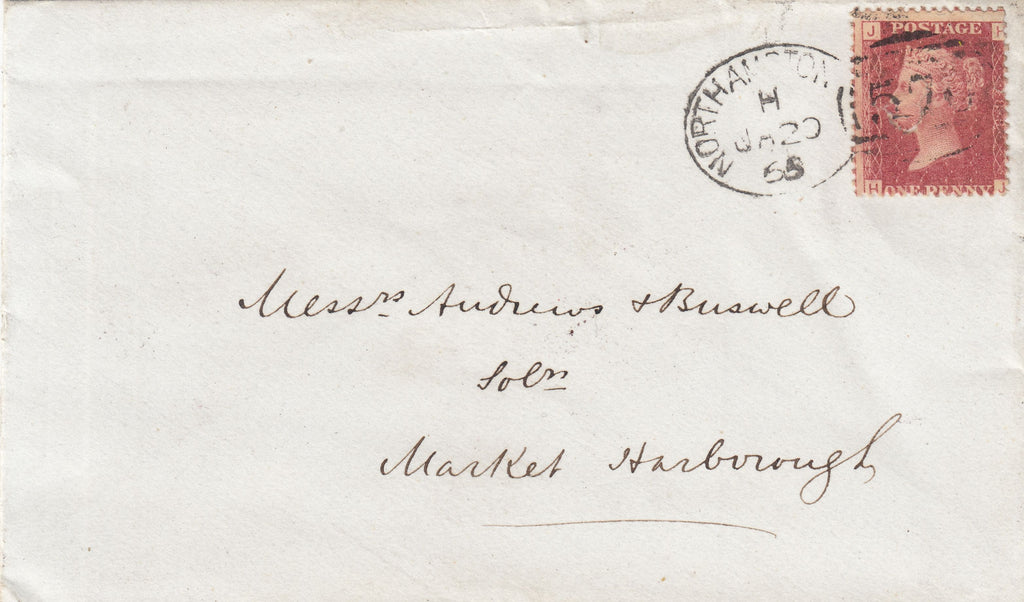 J POSTAGE H
NORTHAMPTON
H
JA 20
65
H ONE PENNY J
Messrs Andrews & Buswell
Solrs
Market Harborough